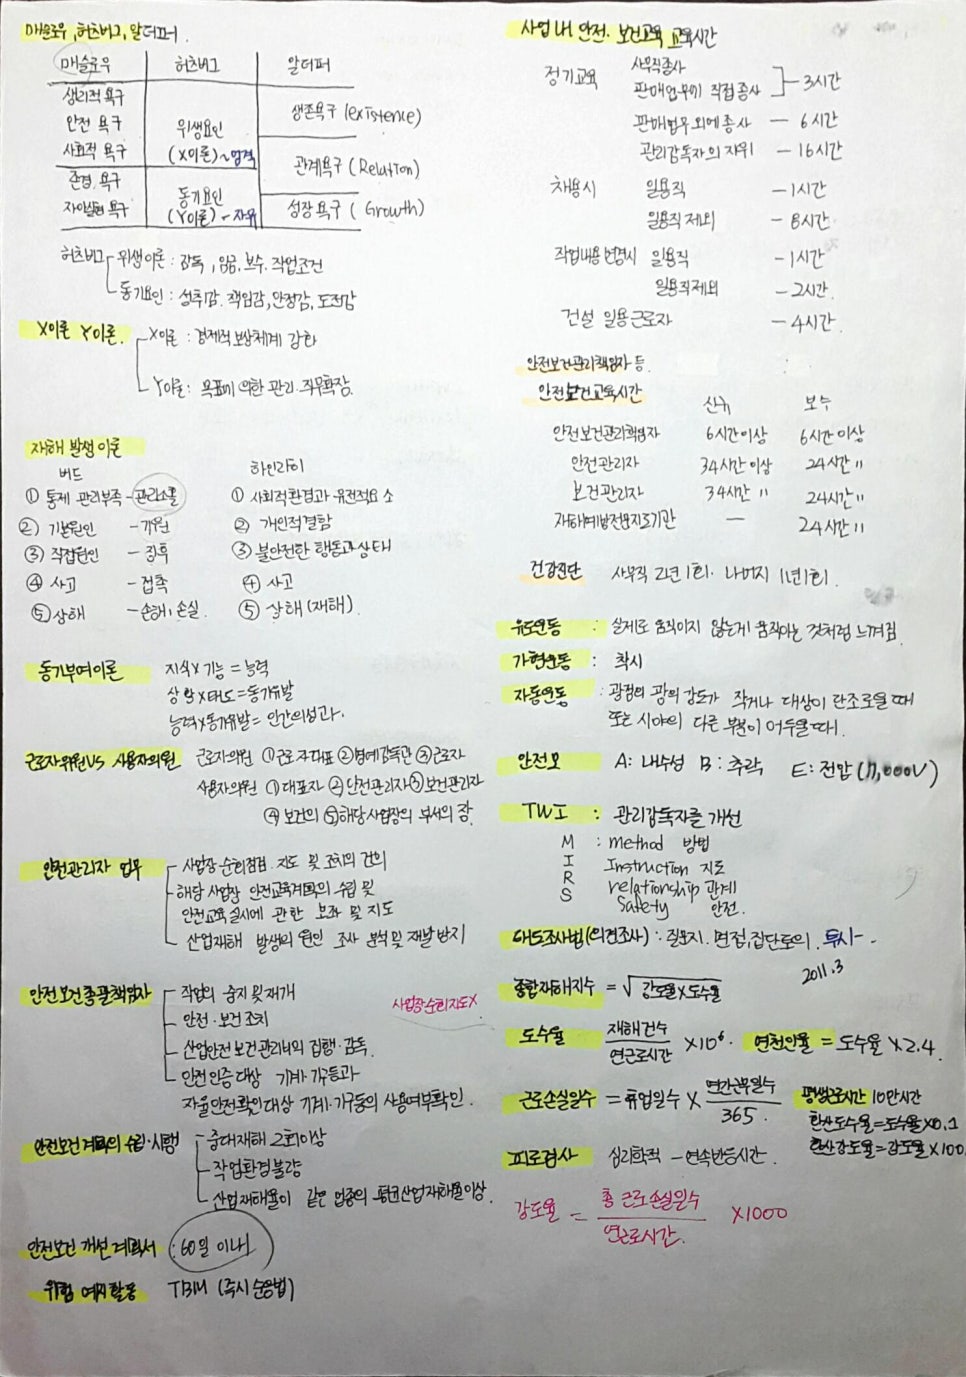 매슬로우, 허츠버그, 알더퍼.
매슬로우 허츠버그 알더퍼
생리적 욕구
안전 욕구
사회적 욕구
존경 욕구
자아실현 욕구
위생요인
(X이론)~엄격
동기요인
(Y이론) - 자유
생존욕구 (existence)
관계욕구 (Relation)
성장욕구 ( Growth)
허츠버그 위생이론 : 감독, 임금, 보수, 작업조건
동기요인 : 성취감, 책임감, 안정감, 도전감
X이론 Y이론. X이론 : 경제적 보상체계 강화
Y이론 : 목표에 의한 관리. 직무확장.
재해 발생 이론
버드
① 통제 관리부족 - 관리소홀
② 기본원인 - 기원
③ 직접원인 - 징후
④ 사고 - 접촉
⑤ 상해 - 손해, 손실.
하인리히
① 사회적환경과 유전적요소
② 개인적결함
③ 불안전한 행동과 상태
④ 사고
⑤ 상해 (재해)
동기부여이론 지식 x 기능 = 능력
상황 x 태도 = 동기유발
능력 x 동기유발 = 인간의성과.
근로자위원 VS 사용자의원 근로자의원 ①근로자대표 ②명예감독관 ③근로자
사용자의원 ①대표자 ②안전관리자 ③보건관리자
④ 보건의 ⑤해당사업장의 부서의 장.
안전관리자 업무 사업장 순회점검. 지도 및 조치의 건의
해당 사업장 안전교육계획의 수립 및
안전교육실시에 관한 보좌 및 지도
산업재해 발생의 원인 조사 분석 및 재발방지
안전보건총괄책임자 작업의 중지 및 재개
안전·보건조치
산업안전보건관리비의 집행·감독.
안전인증대상 기계·기구등과
자율안전확인대상 기계·기구등의 사용여부확인.
사업장순회지도X
안전보건계획의 수립·시행 중대재해 2회이상
작업환경불량
산업재해율이 같은 업종의 평균산업재해율이상.
안전보건 개선계획서 : 60일 이내
위험 예지활동 TBM (즉시 순응법)
사업내 안전·보건교육 교육시간
정기교육 사무직종사
판매업무에 직접종사 - 3시간
판매업무외에종사 - 6시간
관리감독자의 지위 - 16시간
채용시 일용직 - 1시간
일용직 제외 - 8시간
작업내용변경시 일용직 - 1시간
일용직제외 - 2시간.
건설 일용근로자 - 4시간.
안전보건관리책임자 등.
안전보건교육시간 신규 보수
안전보건관리책임자 6시간이상 6시간이상
안전관리자 34시간 이상 24시간 〃
보건관리자 34시간 〃 24시간 〃
재해예방전문지도기관 - 24시간 〃
건강진단 사무직 2년 1회. 나머지 1년 1회.
유도운동 : 실제로 움직이지 않는게 움직이는 것처럼 느껴짐.
가현운동 : 착시
자동운동 : 광점의 광의 강도가 작거나 대상이 단조로울때
또는 시야의 다른 부분이 어두울때.
안전모 A : 내수성 B : 추락 E : 전압 (7,000V)
TWI : 관리감독자를 개선
M : method 방법
I Instruction 지도
R relationship 관계
S Safety 안전.
태도조사법(의견조사) : 질문지. 면접, 집단토의. 투사-.
2011.3
종합재해지수 = √강도율x도수율
도수율 재해건수/연근로시간 x10⁶. 연천인율 = 도수율 x2.4.
근로손실일수 = 휴업일수 x 연간근무일수/365. 평생근로시간 10만시간
환산도수율=도수율x0.1
환산강도율=강도율x100
피로검사 심리학적 - 연속반응시간.
강도율 = 총 근로손실일수/연근로시간. x1000